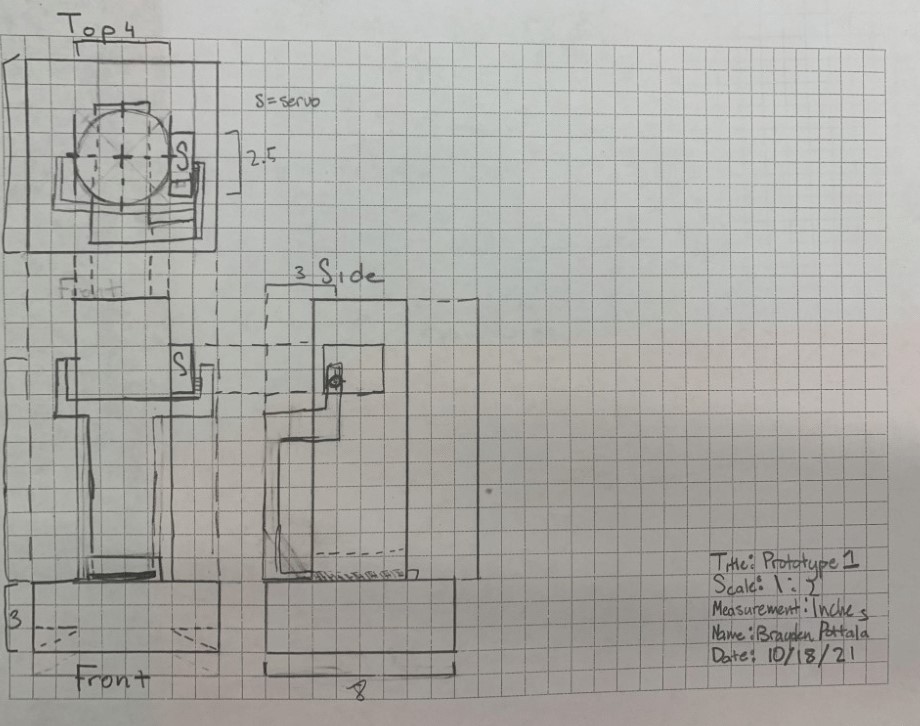 Top 4
S=servo
S
2.5
Front
3 Side
S
3
Front
8
Title: Prototype 1
Scale: 1:2
Measurement: Inches
Name: Brayden Pottala
Date: 10/18/21